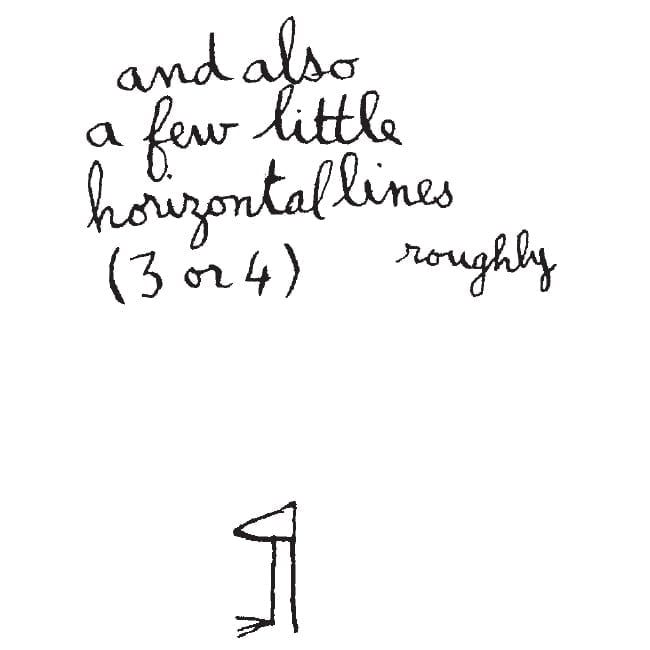 and also
a few little
horizontal lines
(3 or 4) roughly